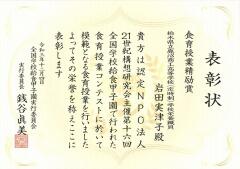 表彰状
食育授業精励賞
栃木県立鹿沼商工高等学校(定時制)学校栄養職員
岩田実津子殿
貴方は認定NPO法人
21世紀構想研究会主催第十六回
全国学校給食甲子園で行われた
食育授業コンテストに於いて
模範となる食育授業を行いました
よってその栄誉を称えここに
表彰します
全国学校給食甲子園実行委員会
実行委員長
銭谷眞美